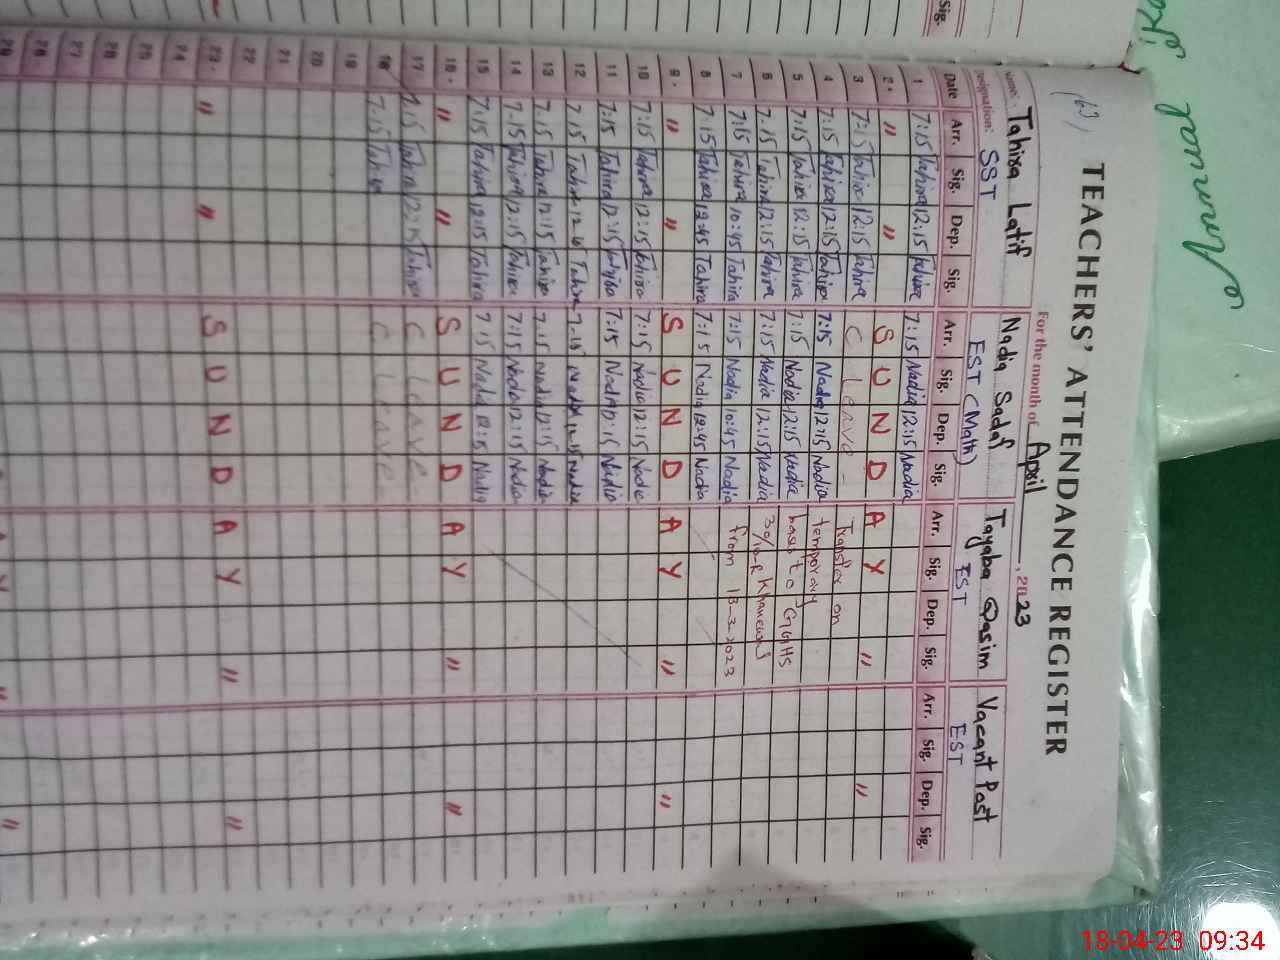 (63)
TEACHERS' ATTENDANCE REGISTER
For the month of April, 2023
Name: Tahira Latif Nadia Sadaf Tayaba Qasim Vacant Post
Designation: SST EST (Math) EST EST
Date Arr. Sig. Dep. Sig. Arr. Sig. Dep. Sig. Arr. Sig. Dep. Sig. Arr. Sig. Dep. Sig.
1 7:15 Tahira 12:15 Tahira 7:15 Nadia 12:15 Nadia
2 " " S U N D A Y " "
3 7:15 Tahira 12:15 Tahira C Leave - Transfer on
4 7:15 Tahira 12:15 Tahira 7:15 Nadia 12:15 Nadia temporary
5 7:15 Tahira 12:15 Tahira 7:15 Nadia 12:15 Nadia basis to GGHS
6 7.15 Tahira 12:15 Tahira 7:15 Nadia 12:15 Nadia 30/10-R Khanewal
7 7:15 Tahira 10:45 Tahira 7:15 Nadia 10:45 Nadia from 13-3-2023
8 7:15 Tahira 12:45 Tahira 7:15 Nadia 12:45 Nadia
9 " " S U N D A Y " "
10 7:15 Tahira 12:15 Tahira 7:15 Nadia 12:15 Nadia
11 7:15 Tahira 12:15 7:15 Nadia 12:15 Nadia
12 7.15 Tahira Tahira 7.15 Nadia 12.15 Nadia
13 7.15 Tahira 12:15 Tahira 7:15 Nadia 12:15 Nadia
14 7.15 Tahira 12:15 Tahira 7:15 Nadia 12:15 Nadia
15 7:15 Tahira 12:15 Tahira 7:15 Nadia Nadia
16 " " S U N D A Y " "
17 7:15 Tahira 12:15 Tahira C Leave -
18 7.15 Tahira C Leave
19
20
21
22
23 " " S U N D A Y " "
24
25
26
27
28
18-04-23 09:34